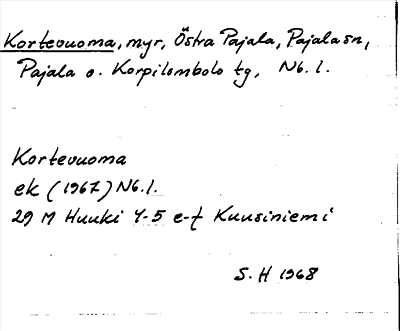 Kortevuoma, myr, Östra Pajala, Pajala sn,
Pajala o. Korpilombolo tg, Nb. l.
Kortevuoma
ek (1967) Nb. l.
29 M Huuki 4-5 e-f Kuusiniemi
S. H 1968